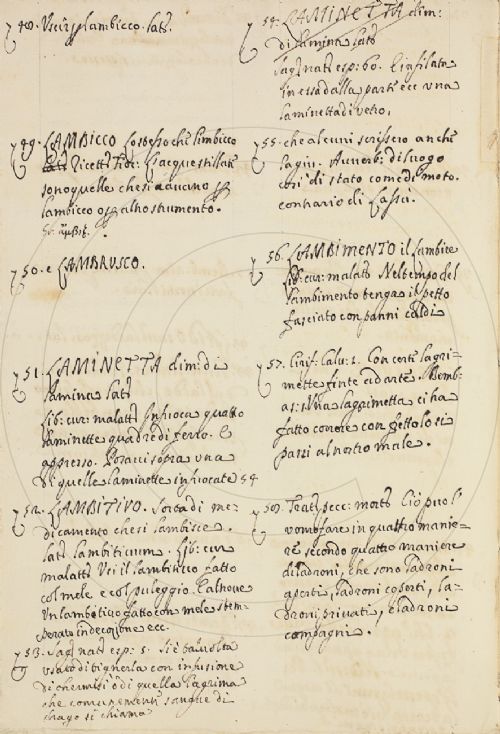 48. Uscir p lambicco. lat.
49. LAMBICCO lo stesso che limbicco
lat. Ricett. Fior. L'acque stillate
sono quelle che si cavano p
lambicco o p altro strumento.
50. e LAMBRUSCO.
51. LAMINETTA dim: di
lamina lat.
lib: cur: malatt. Infuoca quattro
laminette quadre di ferro. E
appresso. Poni sopra una
di quelle laminette infuocate 54
52. LAMBITIVO. Sorta di me-
dicamento che si lambisce.
lat. lambitivum. lib: cur
malatt. Usi il lambitivo fatto
col mele e col puleggio. E altrove
Un lambitivo fatto con mele stem-
perato in decozione ecc.
53. Sag: nat: esp: 5. Si è talvolta
usato di tignerla con infusione
di chermisi o di quella lagrima
che comunemente sangue di
drago si chiama
54. LAMINETTA dim:
di lamina lat.
Sag: nat: esp: 60. E infilata
in essa dalla parte ecc una
laminetta di vetro.
55. che alcuni scrissero anche
lagiù. Avverb: di luogo
così di stato come di moto.
contrario di Lassù.
56. LAMBIMENTO il lambire
lib: cur: malatt. Nel tempo del
lambimento tenga il petto
fasciato con panni caldi
57. Cirif: Calv: 1. Con certe lagri-
mette finte ad arte. Bemb:
as: 1. Una lagrimetta ci ha
fatto correre con gettolo si
pari al nostro male.
58. Tratt: pecc: mort. Ciò puo l'
uomo fare in quattro manie-
re secondo quattro maniere
di ladroni, che sono ladroni
aperti, ladroni coperti, la-
droni privati, e ladroni
compagni.